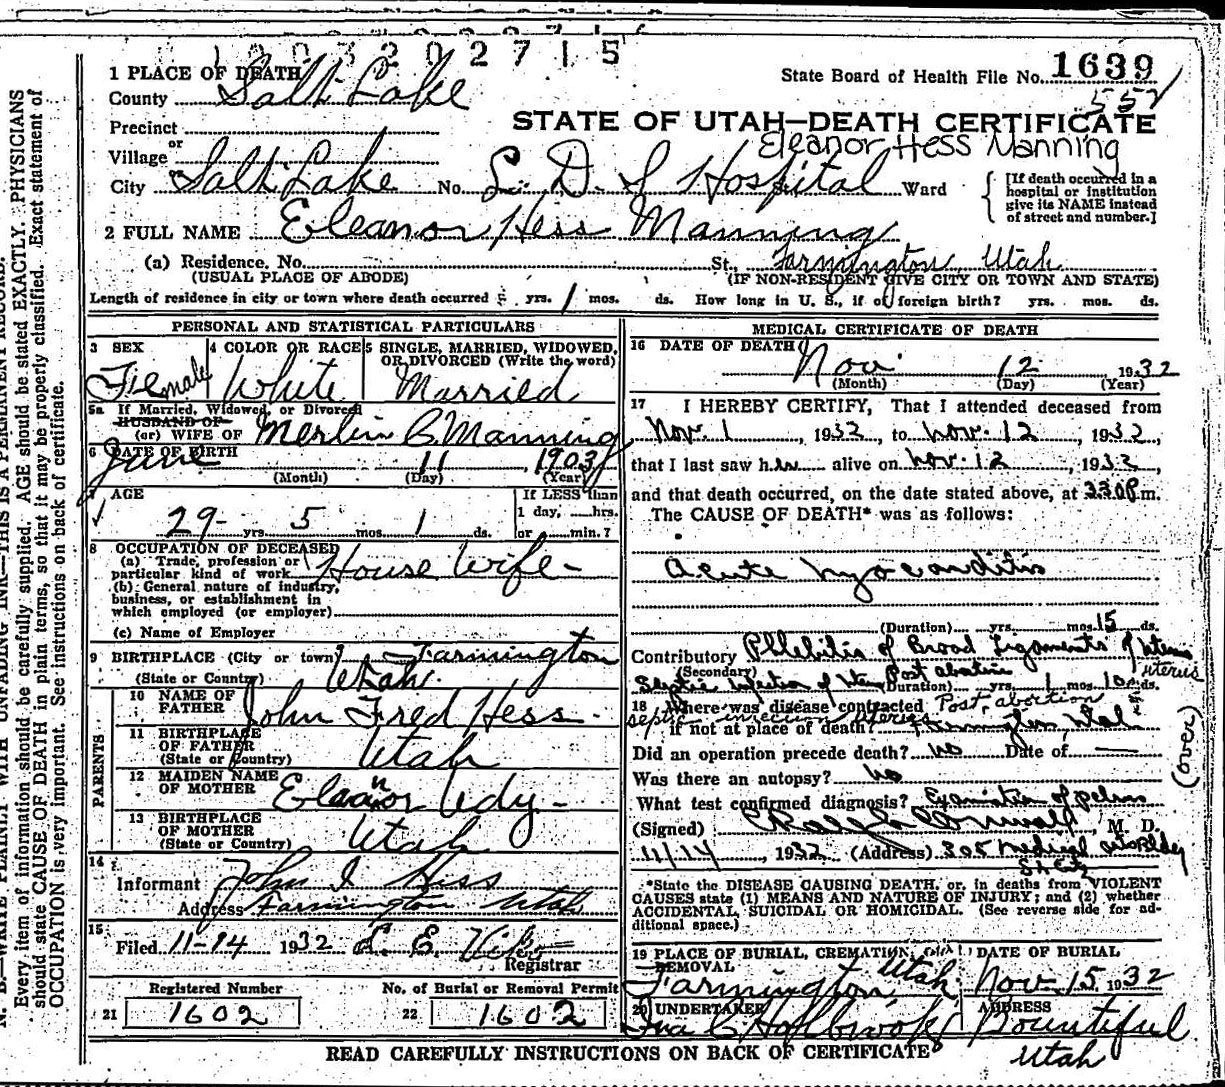 1 9 0 3 2 0 2 7 1 5
1 PLACE OF DEATH
County Salt Lake
State Board of Health File No. 1639
552
Precinct
or
Village
STATE OF UTAH—DEATH CERTIFICATE
Eleanor Hess Manning
City Salt Lake No. L. D. S Hospital Ward
[If death occurred in a
hospital or institution
give its NAME instead
of street and number.]
2 FULL NAME Eleanor Hess Manning
(a) Residence, No. St., Farmington Utah
(USUAL PLACE OF ABODE) (IF NON-RESIDENT GIVE CITY OR TOWN AND STATE)
Length of residence in city or town where death occurred yrs. 1 mos. ds. How long in U. S., if of foreign birth? yrs. mos. ds.
PERSONAL AND STATISTICAL PARTICULARS
3 SEX 4 COLOR OR RACE 5 SINGLE, MARRIED, WIDOWED,
OR DIVORCED (Write the word)
Female White Married
5a If Married, Widowed, or Divorced
HUSBAND OF
(or) WIFE OF Merlin C. Manning
6 DATE OF BIRTH
June 11, 1903
(Month) (Day) (Year)
7 AGE If LESS than
1 day, hrs.
29 yrs. 5 mos. 1 ds. or min.?
8 OCCUPATION OF DECEASED
(a) Trade, profession or
particular kind of work House Wife-
(b) General nature of industry,
business, or establishment in
which employed (or employer)
(c) Name of Employer
9 BIRTHPLACE (City or town) Farmington
(State or Country) Utah.
PARENTS
10 NAME OF
FATHER John Fred Hess.
11 BIRTHPLACE
OF FATHER
(State or Country) Utah
12 MAIDEN NAME
OF MOTHER Eleanor Udy-
13 BIRTHPLACE
OF MOTHER
(State or Country) Utah
14
Informant John I Hess
Address Farmington Utah
15
Filed 11-14 1932
Registrar
Registered Number No. of Burial or Removal Permit
21 1602 22 1602
MEDICAL CERTIFICATE OF DEATH
16 DATE OF DEATH
Nov 12 1932
(Month) (Day) (Year)
17 I HEREBY CERTIFY, That I attended deceased from
Nov. 1, 1932, to Nov. 12, 1932,
that I last saw her alive on Nov. 12, 1932,
and that death occurred, on the date stated above, at 330P.m.
The CAUSE OF DEATH* was as follows:
Acute Myocarditis
(Duration) yrs. mos. 15 ds.
Contributory Phlebitis of Broad Ligaments of Uterus
(Secondary) uterus
Septic Infection of Uterus Post abortion
(Duration) yrs. 1 mos. 10 ds.
18 Where was disease contracted Post, abortion
septic infection uterus
if not at place of death? Farmington, Utah
Did an operation precede death? no Date of —
Was there an autopsy? No
(over)
What test confirmed diagnosis? Examination of pelvis
(Signed) Ralph Cornwall, M. D.
11/14, 1932 (Address) 305 Medical Arts Bldg
*State the DISEASE CAUSING DEATH, or, in deaths from VIOLENT
CAUSES state (1) MEANS AND NATURE OF INJURY; and (2) whether
ACCIDENTAL, SUICIDAL OR HOMICIDAL. (See reverse side for ad-
ditional space.)
19 PLACE OF BURIAL, CREMATION, OR DATE OF BURIAL
REMOVAL
Farmington, Utah. Nov. 15 1932
20 UNDERTAKER ADDRESS
Iva C Holbrook Bountiful
Utah
READ CAREFULLY INSTRUCTIONS ON BACK OF CERTIFICATE
N. B.—WRITE PLAINLY WITH UNFADING INK—THIS IS A PERMANENT RECORD.
Every item of information should be carefully supplied. AGE should be stated EXACTLY. PHYSICIANS
should state CAUSE OF DEATH in plain terms, so that it may be properly classified. Exact statement of
OCCUPATION is very important. See instructions on back of certificate.